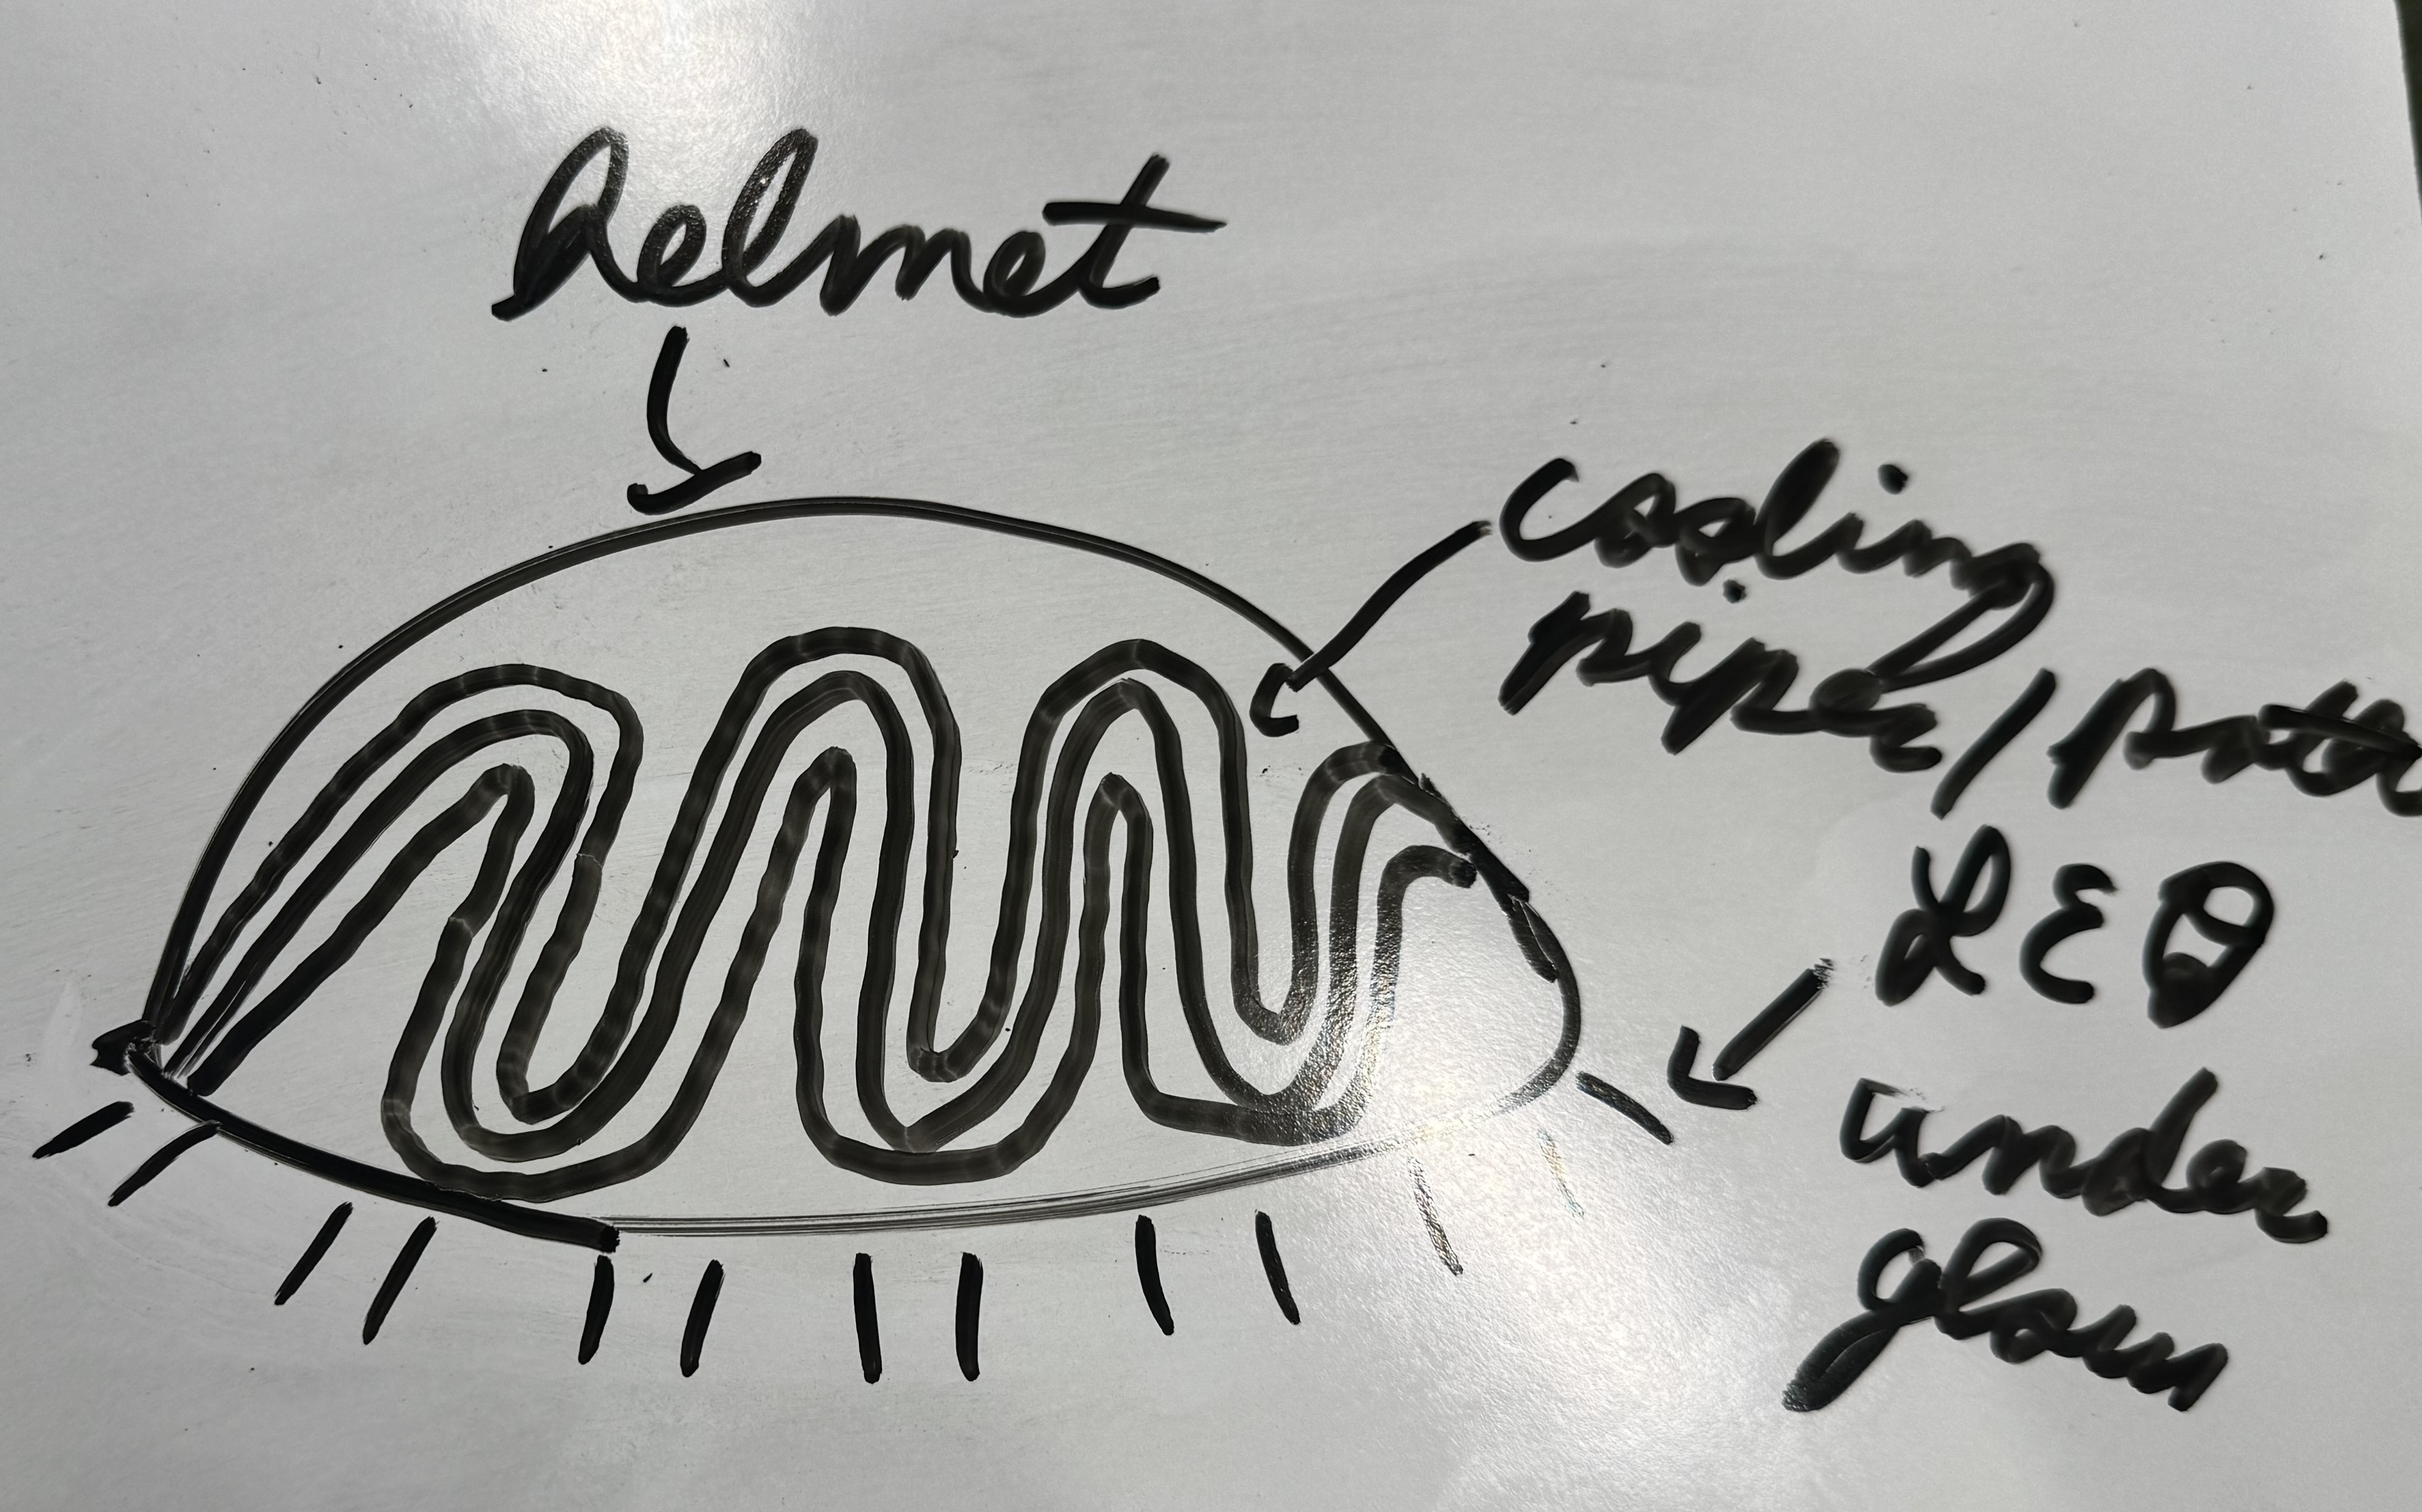 helmet
cooling
pipes/
LED
under
glow